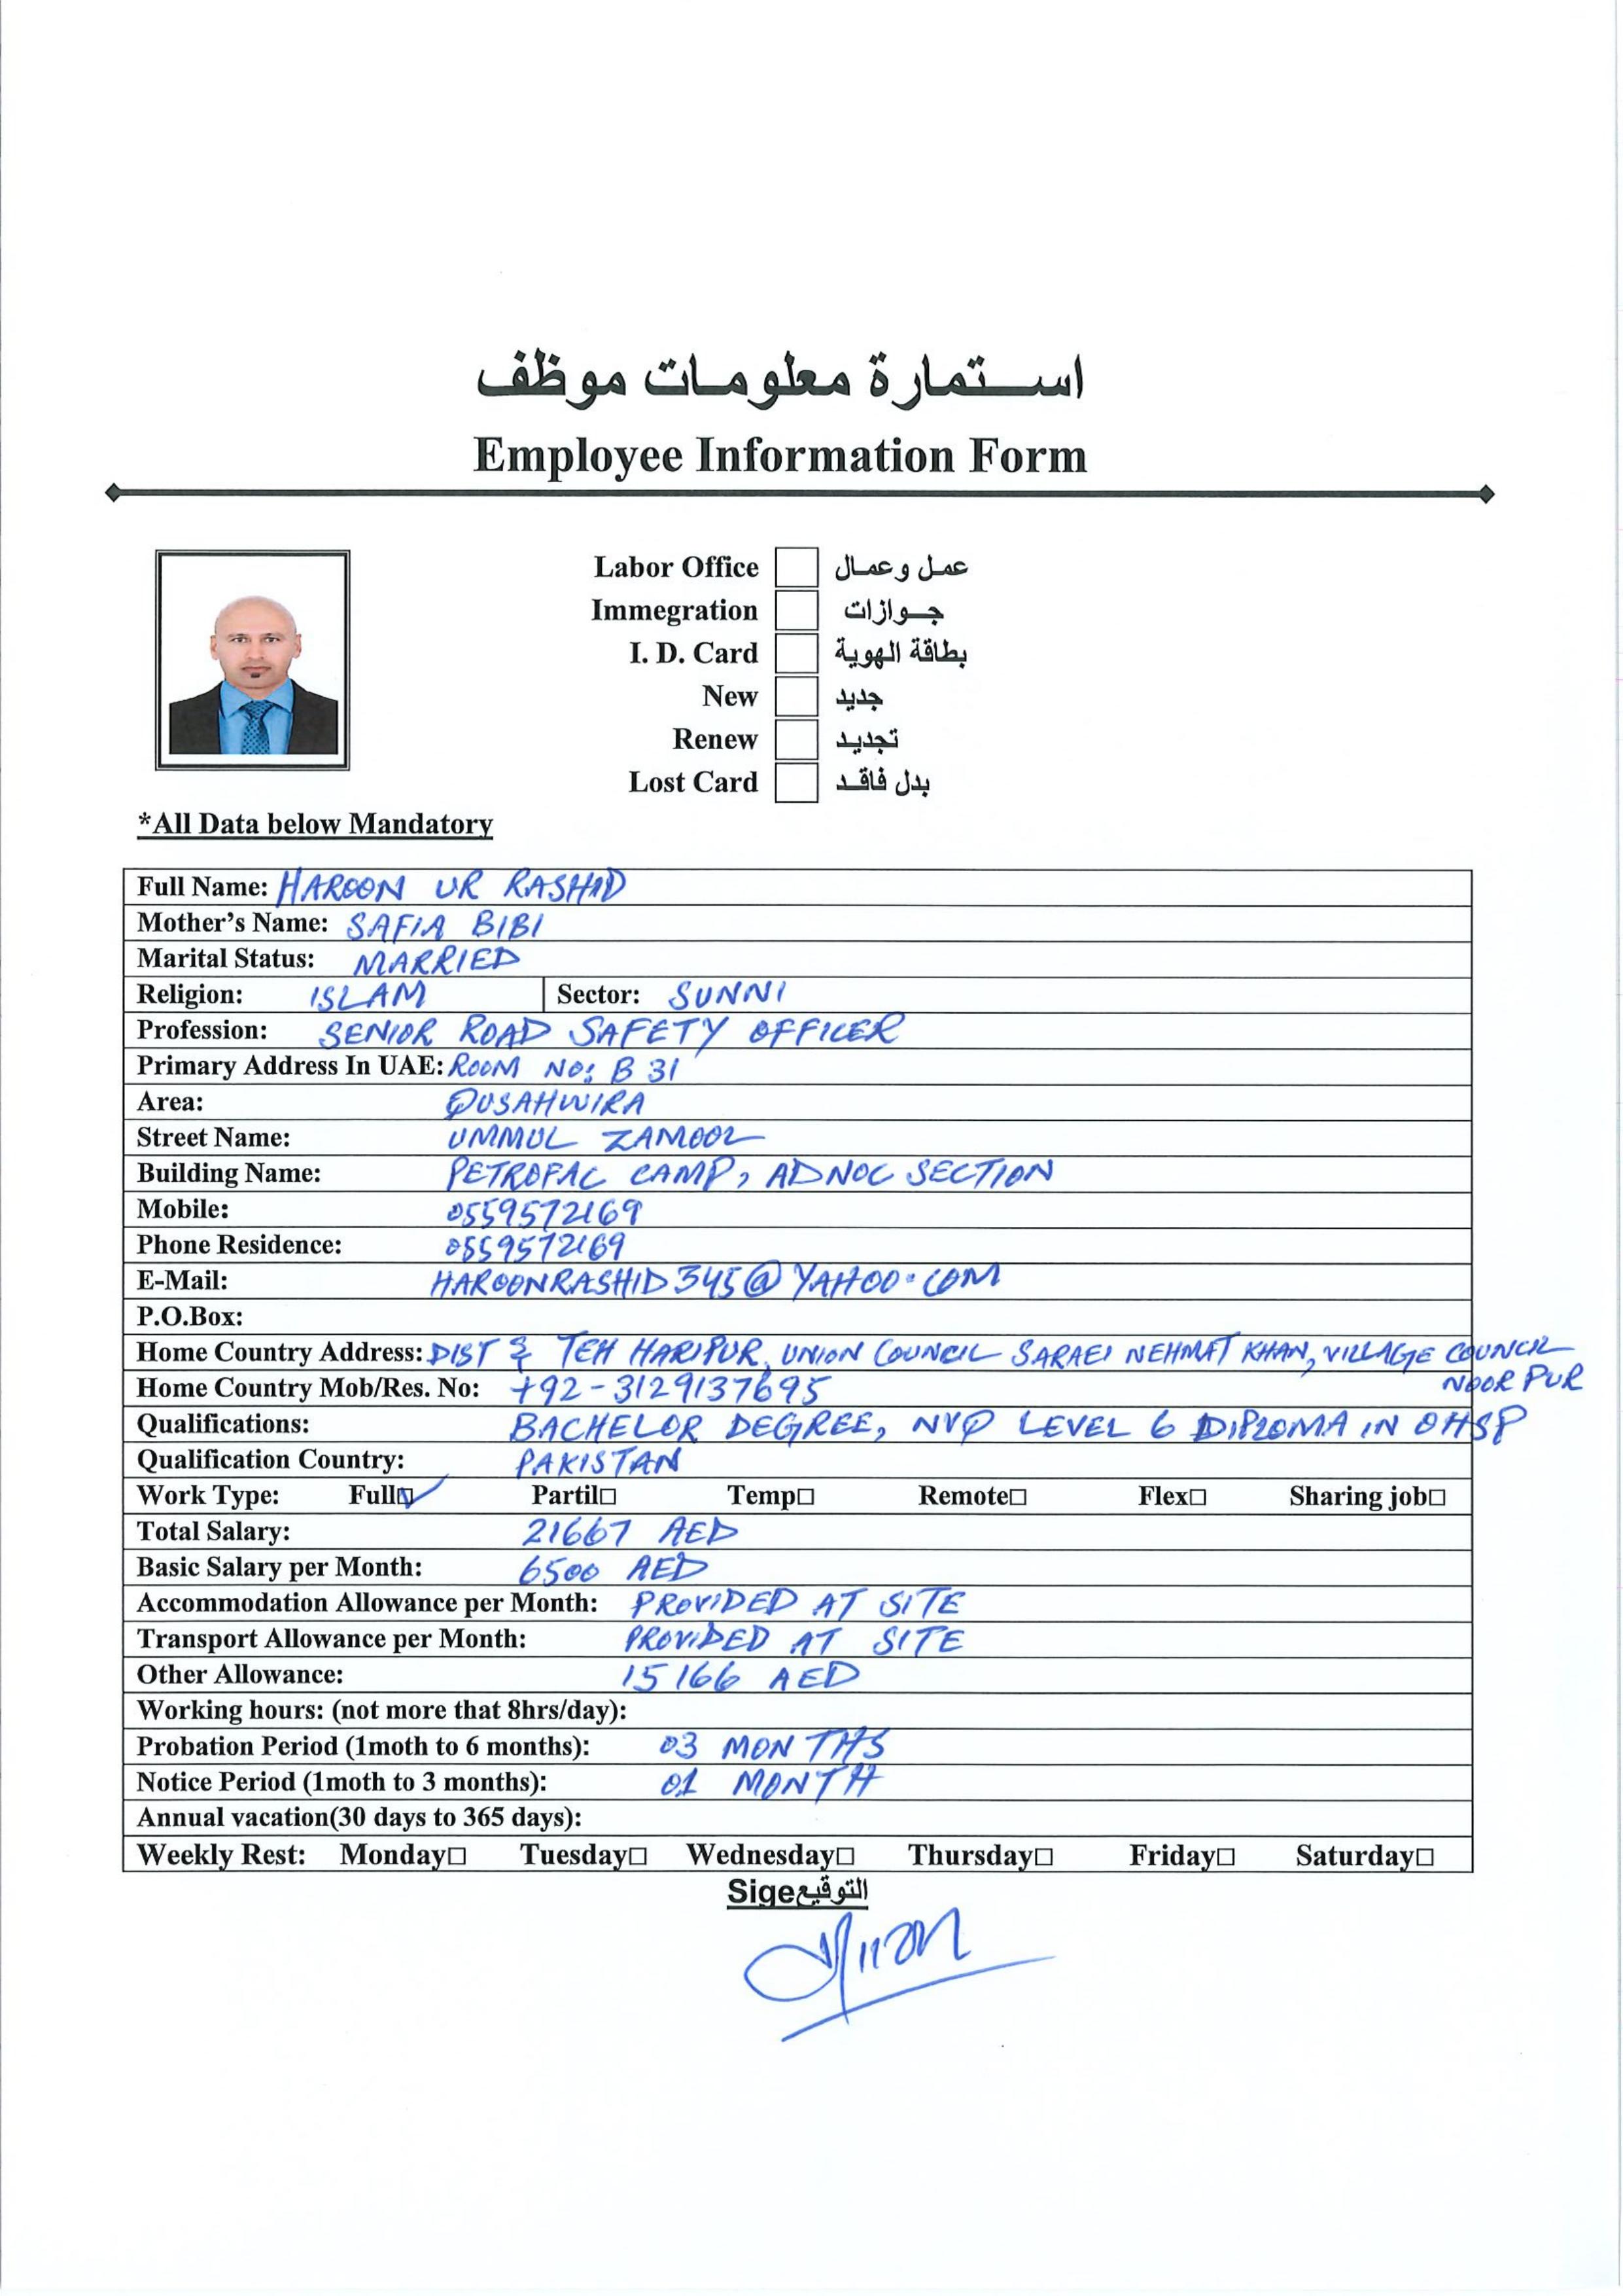 استمارة معلومات موظف
Employee Information Form
Labor Office عمل وعمال
Immegration جوازات
I. D. Card بطاقة الهوية
New جديد
Renew تجديد
Lost Card بدل فاقد
*All Data below Mandatory
Full Name: HAROON UR RASHID
Mother's Name: SAFIA BIBI
Marital Status: MARRIED
Religion: ISLAM Sector: SUNNI
Profession: SENIOR ROAD SAFETY OFFICER
Primary Address In UAE: ROOM NO: B 31
Area: QUSAHWIRA
Street Name: UMMUL ZAMOOL
Building Name: PETROFAC CAMP, ADNOC SECTION
Mobile: 0559572169
Phone Residence: 0559572169
E-Mail: HAROONRASHID345@YAHOO.COM
P.O.Box:
Home Country Address: DIST & TEH HARIPUR, UNION COUNCIL SARAEI NEHMAT KHAN, VILLAGE COUNCIL
NOOR PUR
Home Country Mob/Res. No: +92-3129137695
Qualifications: BACHELOR DEGREE, NVQ LEVEL 6 DIPLOMA IN OHSP
Qualification Country: PAKISTAN
Work Type: Full☑ Partil☐ Temp☐ Remote☐ Flex☐ Sharing job☐
Total Salary: 21667 AED
Basic Salary per Month: 6500 AED
Accommodation Allowance per Month: PROVIDED AT SITE
Transport Allowance per Month: PROVIDED AT SITE
Other Allowance: 15166 AED
Working hours: (not more that 8hrs/day):
Probation Period (1moth to 6 months): 03 MONTHS
Notice Period (1moth to 3 months): 01 MONTH
Annual vacation(30 days to 365 days):
Weekly Rest: Monday☐ Tuesday☐ Wednesday☐ Thursday☐ Friday☐ Saturday☐
Sigeالتوقيع